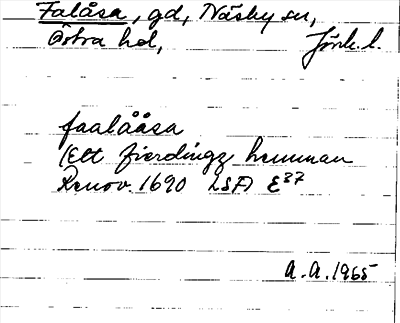 Falåsa, gd, Näsby sn,
Östra hd, Jönk. l.
faalååsa
(Ett fierdingz hemman
Renov. 1690 LSA E37
A.A. 1965